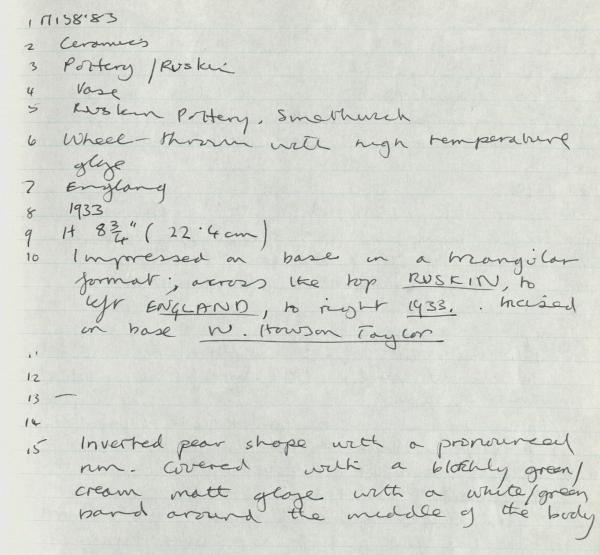 1 M138'83
2 Ceramics
3 Pottery / Ruskin
4 Vase
5 Ruskin Pottery, Smethwick
6 Wheel-thrown with high temperature
glaze
7 England
8 1933
9 H 8¾" (22.4cm)
10 Impressed on base in a triangular
format; across the top RUSKIN, to
left ENGLAND, to right 1933. Incised
on base W. Howson Taylor
11
12
13 —
14
15 Inverted pear shape with a pronounced
rim. Covered with a blotchy green/
cream matt glaze with a white/green
band around the middle of the body